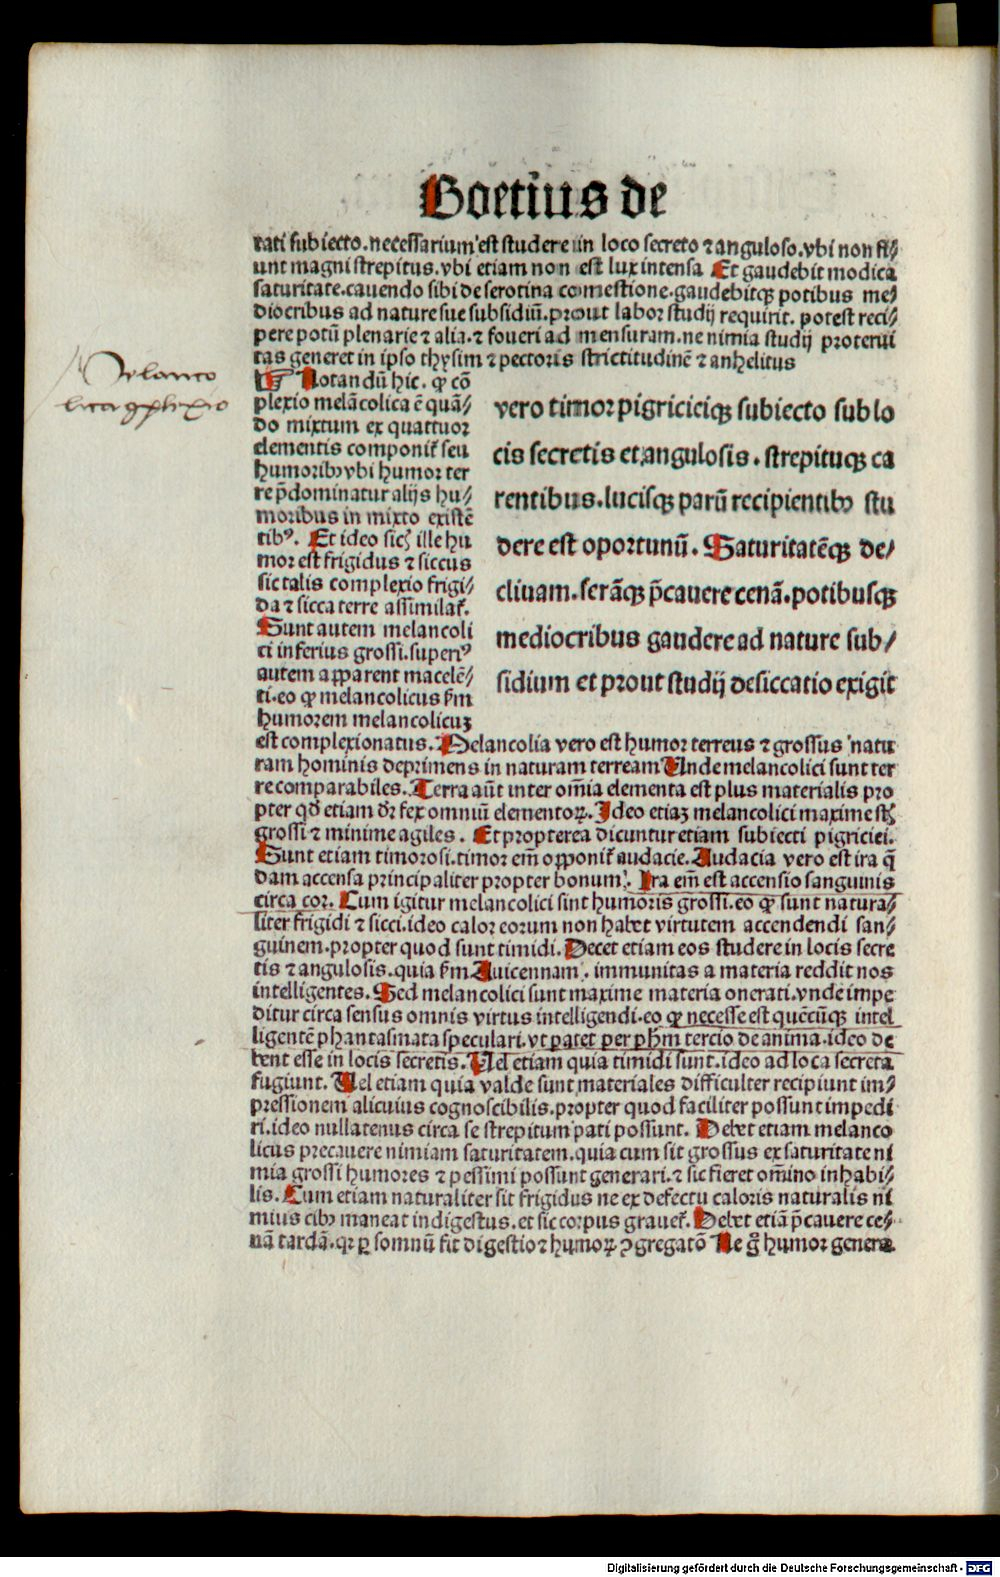 Boetius de
rati subiecto.necessarium est studere in loco secreto ⁊ anguloso.vbi non fi⸗
unt magni strepitus.vbi etiam non est lux intensa Et gaudebit modica
saturitate.cauendo sibi de serotina comestione.gaudebitqꝫ potibus me⸗
diocribus ad nature sue subsidiū.prout labor studij requirit. potest reci⸗
pere potū plenarie ⁊ alia.⁊ foueri ad mensuram.ne nimia studij proterui
tas generet in ipso thysim ⁊ pectoris strictitudinē ⁊ anhelitus
Melanco
lica ꝯplexio
☞ Notandū hic. ꝙ cō
plexio melācolica ē quā⸗
do mixtum ex quattuor
elementis componit̄ seu
humoribꝫ vbi humor ter
re p̄dominatur alijs hu⸗
moribus in mixto existē
tibꝰ. Et ideo sic̄ ille hu
mor est frigidus ⁊ siccus
sic talis complexio frigi⸗
da ⁊ sicca terre assimilat̄.
Sunt autem melancoli
ci inferius grossi.superiꝰ
autem apparent macelē⸗
ti.eo ꝙ melancolicus ẜm
humorem melancolicuꝫ
vero timor pigricieiqꝫ subiecto sub lo
cis secretis et angulosis. strepituqꝫ ca
rentibus.lucisqꝫ parū recipientibꝫ stu
dere est oportunū. Saturitatēqꝫ de⸗
cliuam.serāqꝫ p̄cauere cenā.potibusqꝫ
mediocribus gaudere ad nature sub⸗
sidium et prout studij desiccatio exigit
est complexionatus. Melancolia vero est humor terreus ⁊ grossus natu
ram hominis deprimens in naturam terream Unde melancolici sunt ter
re comparabiles. Terra aūt inter om̄ia elementa est plus materialis pro
pter qd̄ etiam dr̄ fex omniū elementoꝝ. Ideo etiaꝫ melancolici maxime st̄
grossi ⁊ minime agiles. Et propterea dicuntur etiam subiecti pigriciei.
Sunt etiam timorosi.timor em̄ opponit̄ audacie. Audacia vero est ira q̄
dam accensa principaliter propter bonum. Ira em̄ est accensio sanguinis
circa cor. Cum igitur melancolici sint humoris grossi.eo ꝙ sunt natura⸗
liter frigidi ⁊ sicci.ideo calor eorum non habet virtutem accendendi san⸗
guinem.propter quod sunt timidi. Decet etiam eos studere in locis secre
tis ⁊ angulosis.quia ẜm Auicennam. immunitas a materia reddit nos
intelligentes. Sed melancolici sunt maxime materia onerati.vnde impe
ditur circa sensus omnis virtus intelligendi.eo ꝙ necesse est quēcūqꝫ intel
ligentē phantasmata speculari.vt patet per phm̄ tercio de anima.ideo de
bent esse in locis secretis. Uel etiam quia timidi sunt.ideo ad loca secreta
fugiunt. Uel etiam quia valde sunt materiales difficulter recipiunt im⸗
pressionem alicuius cognoscibilis.propter quod faciliter possunt impedi
ri.ideo nullatenus circa se strepitum pati possunt. Debet etiam melanco
licus precauere nimiam saturitatem.quia cum sit grossus ex saturitate ni
mia grossi humores ⁊ pessimi possunt generari.⁊ sic fieret om̄ino inhabi⸗
lis. Cum etiam naturaliter sit frigidus ne ex defectu caloris naturalis ni
mius cibꝫ maneat indigestus.et sic corpus grauet̄. Debet etiā p̄cauere ce⸗
nā tardā.qꝛ ꝑ somnū fit digestio ⁊ humoꝝ ꝯgregatō Ne gͦ humor genera
Digitalisierung gefördert durch die Deutsche Forschungsgemeinschaft - DFG